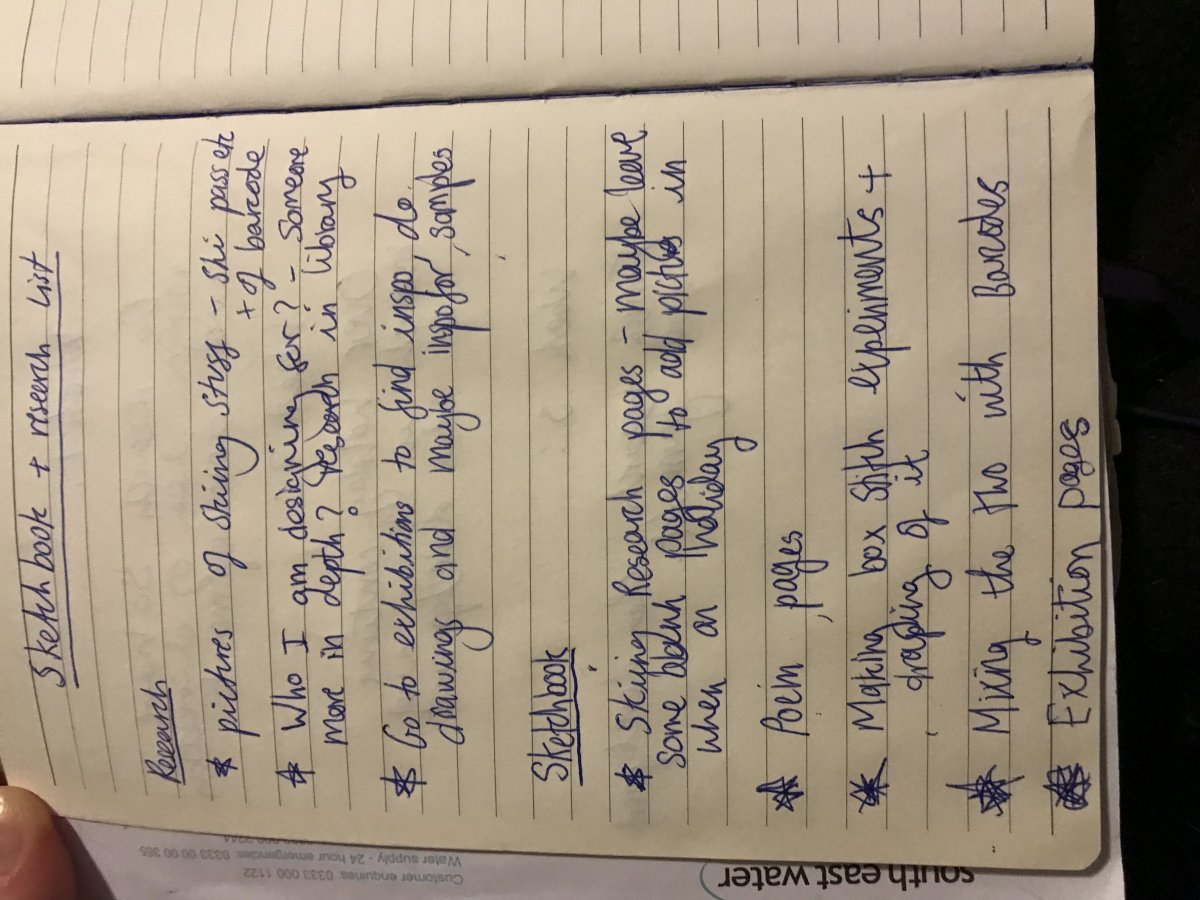 Sketchbook + research list
Research
* pictures of skiing stuff - ski pass etc
+ of barcode
* Who I am designing for? - Someone
more in depth? research in library
* Go to exhibitions to find inspo do
drawings and maybe inspo for samples
Sketchbook
* Skiing Research pages - maybe leave
some blank pages to add pictures in
when on holiday
* Poem pages
* Making box stitch experiments +
draping of it
* Mixing the two with Barcodes
* Exhibition pages
south east water
Customer enquiries: 0333 000 1122
Water supply - 24 hour emergencies: 0333 00 00 365